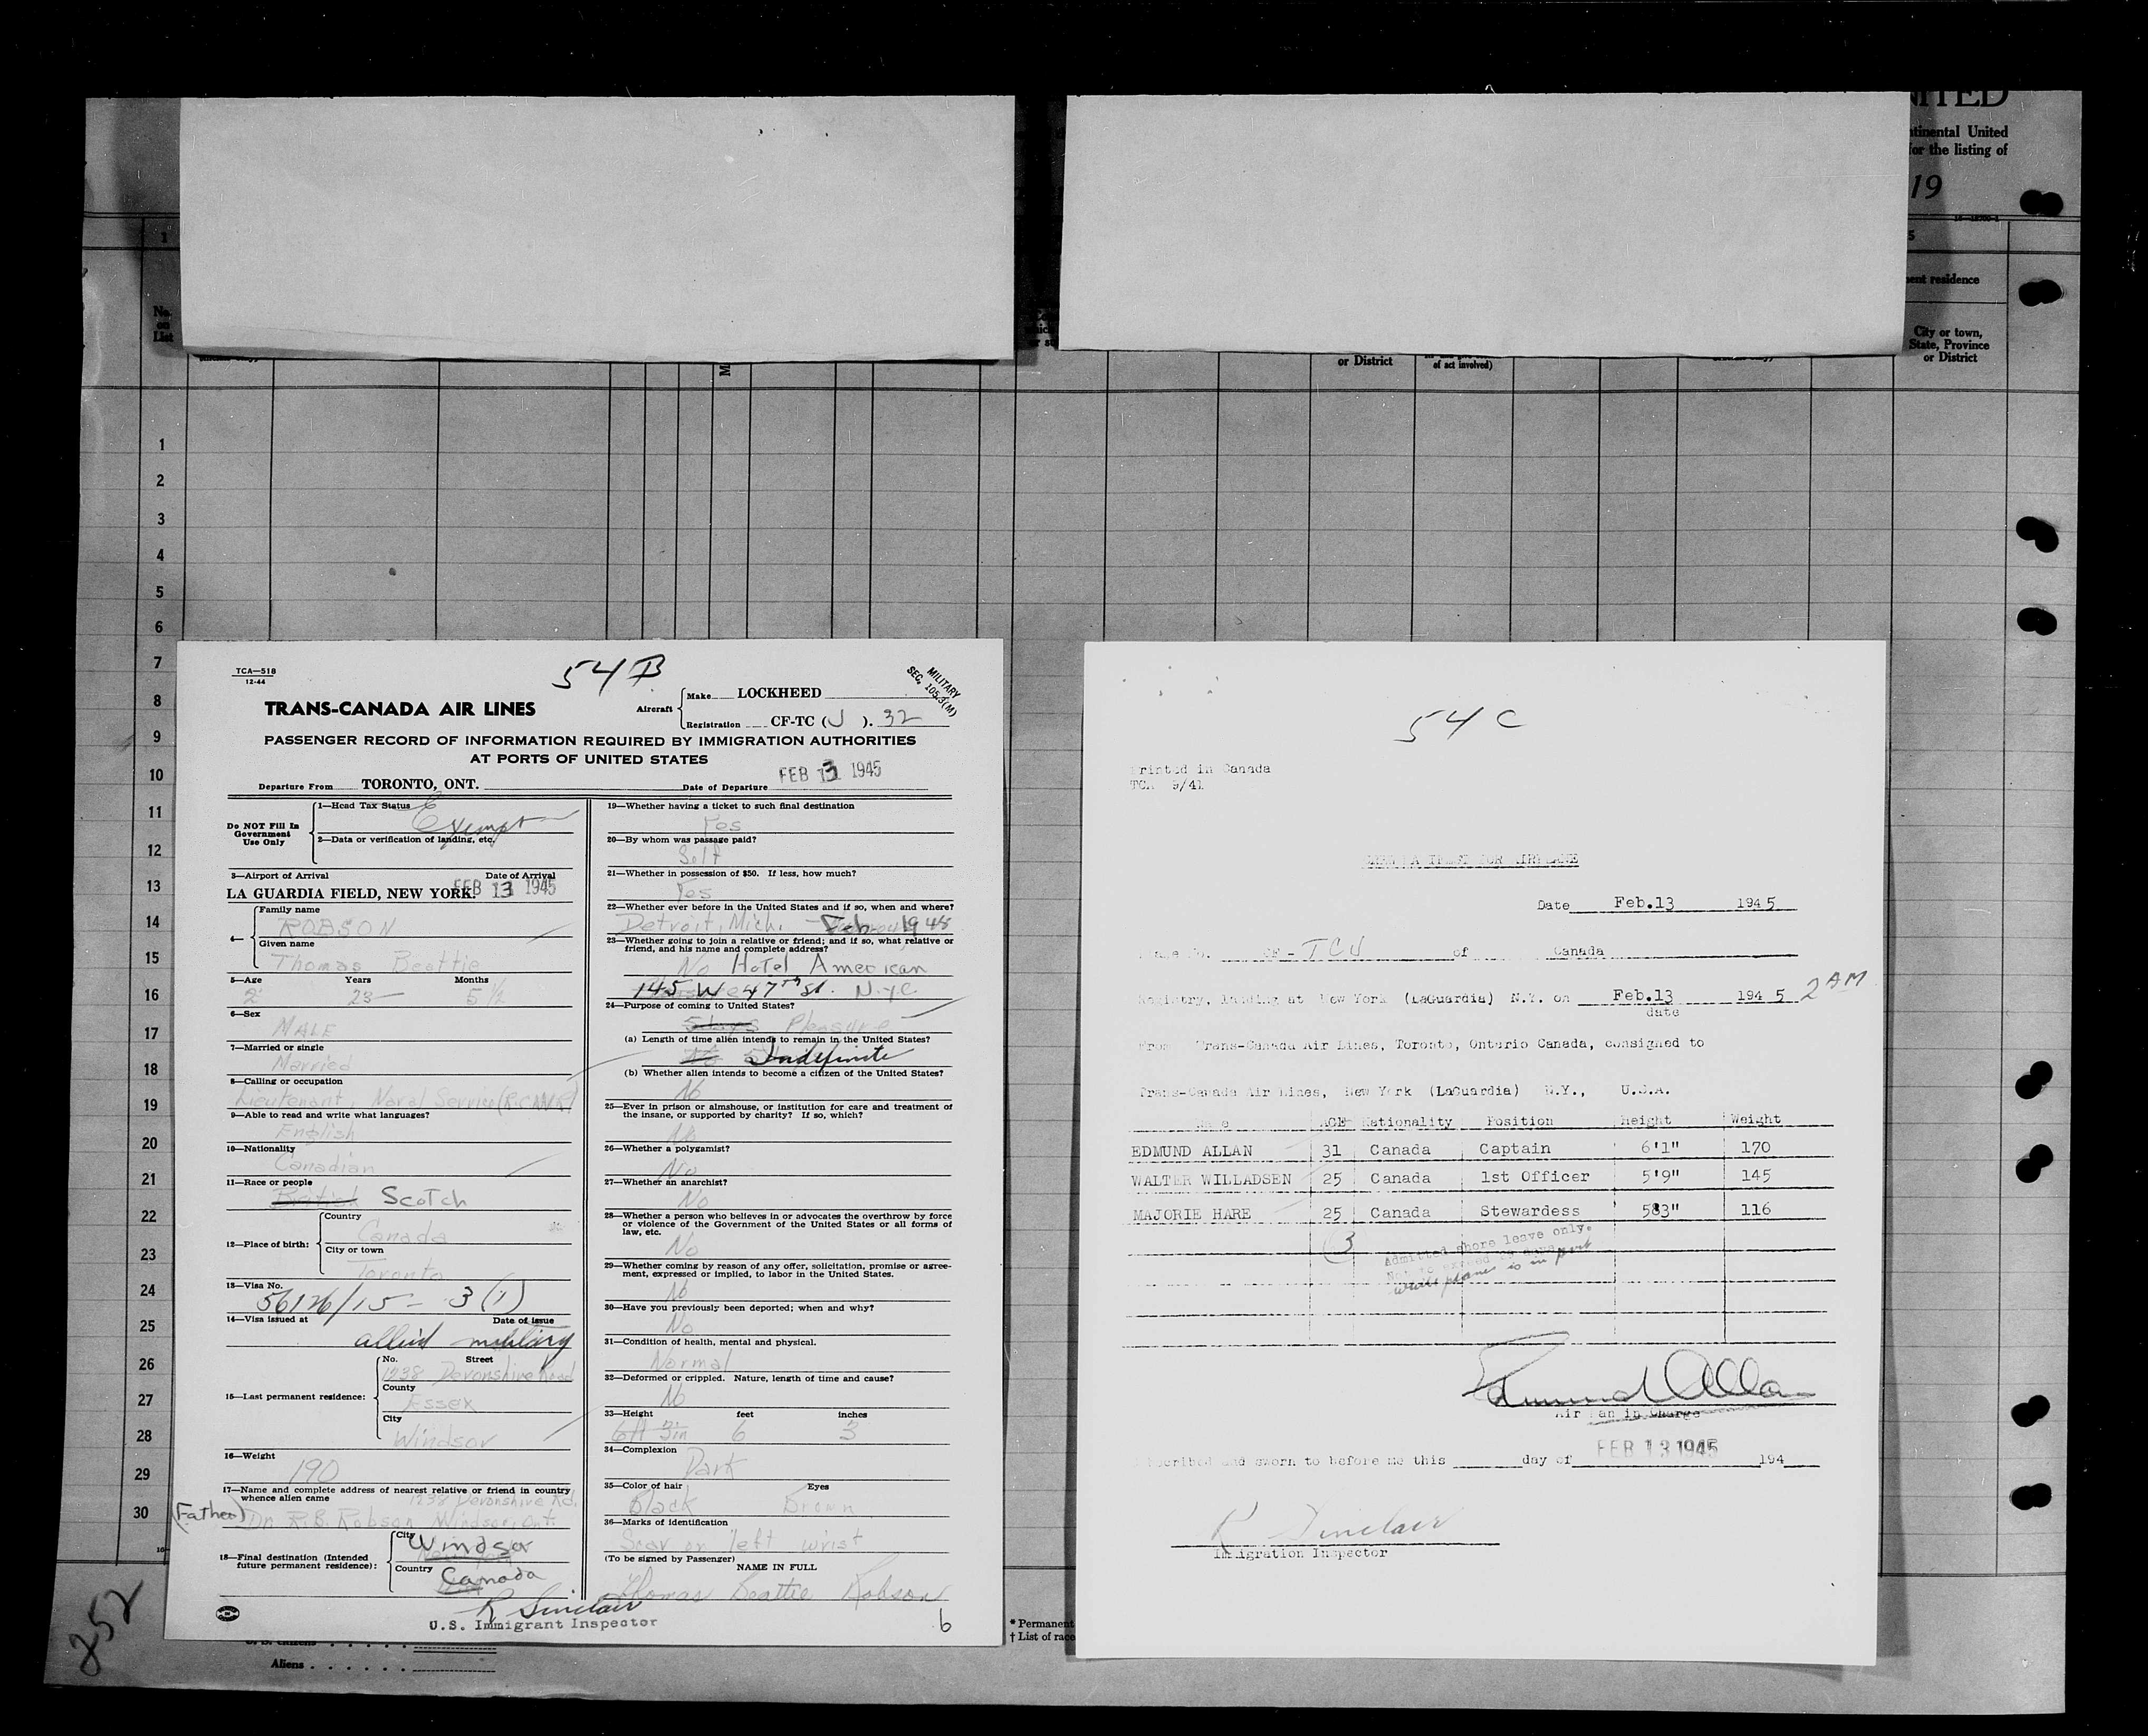 NITED
tinental United
for the listing of
19
1
5
No.
on
List
M
or District
of act involved)
ent residence
City or town,
State, Province
or District
1
2
3
4
5
6
7
8
9
10
11
12
13
14
15
16
17
18
19
20
21
22
23
24
25
26
27
28
29
30
852
Aliens . . . . . .
* Permanent
† List of race
TCA—518
12-44
54B
MILITARY
SEC. 105.3(M)
TRANS-CANADA AIR LINES
Aircraft
Make LOCKHEED
Registration CF-TC (U). 32
PASSENGER RECORD OF INFORMATION REQUIRED BY IMMIGRATION AUTHORITIES
AT PORTS OF UNITED STATES
Departure From TORONTO, ONT. Date of Departure FEB 13 1945
Do NOT Fill In
Government
Use Only
1—Head Tax Status
Exempt
2—Data or verification of landing, etc.
3—Airport of Arrival Date of Arrival
LA GUARDIA FIELD, NEW YORK. FEB 13 1945
4—
Family name
ROBSON
Given name
Thomas Beattie
5—Age Years Months
23 5 1/2
6—Sex
MALE
7—Married or single
Married
8—Calling or occupation
Lieutenant, Naval Service
9—Able to read and write what languages?
English
10—Nationality
Canadian
11—Race or people
British Scotch
12—Place of birth:
Country
Canada
City or town
Toronto
13—Visa No.
56126/15 - 3(1)
14—Visa issued at Date of issue
allied military
15—Last permanent residence:
No. Street
1238 Devonshire Road
County
Essex
City
Windsor
16—Weight
190
17—Name and complete address of nearest relative or friend in country
whence alien came 1238 Devonshire Rd.
(Father) Dr. R.B. Robson Windsor, Ont.
18—Final destination (Intended
future permanent residence):
City Windsor
Country Canada
R Sinclair
U.S. Immigrant Inspector
19—Whether having a ticket to such final destination
Yes
20—By whom was passage paid?
Self
21—Whether in possession of $50. If less, how much?
Yes
22—Whether ever before in the United States and if so, when and where?
Detroit, Mich. - Feb 1945
23—Whether going to join a relative or friend; and if so, what relative or
friend, and his name and complete address?
No Hotel American
145 W 47th St. N.Y.C
24—Purpose of coming to United States?
5 days Pleasure
(a) Length of time alien intends to remain in the United States?
Indefinite
(b) Whether alien intends to become a citizen of the United States?
No
25—Ever in prison or almshouse, or institution for care and treatment of
the insane, or supported by charity? If so, which?
No
26—Whether a polygamist?
No
27—Whether an anarchist?
No
28—Whether a person who believes in or advocates the overthrow by force
or violence of the Government of the United States or all forms of
law, etc.
No
29—Whether coming by reason of any offer, solicitation, promise or agree-
ment, expressed or implied, to labor in the United States.
No
30—Have you previously been deported; when and why?
No
31—Condition of health, mental and physical.
Normal
32—Deformed or crippled. Nature, length of time and cause?
No
33—Height feet inches
6 ft 3 in 6 3
34—Complexion
Dark
35—Color of hair Eyes
Black Brown
36—Marks of identification
Scar on left wrist
(To be signed by Passenger)
NAME IN FULL
Thomas Beattie Robson
6
54 C
Printed in Canada
TCA 9/41
Date Feb.13 1945
CF-TCU of Canada
Registry, landing at New York (LaGuardia) N.Y. on Feb.13 1945 2 AM
date
From Trans-Canada Air Lines, Toronto, Ontario Canada, consigned to
Trans-Canada Air Lines, New York (LaGuardia) N.Y., U.S.A.
Name AGE Nationality Position Height Weight
EDMUND ALLAN 31 Canada Captain 6'1" 170
WALTER WILLADSEN 25 Canada 1st Officer 5'9" 145
MAJORIE HARE 25 Canada Stewardess 5'3" 116
3
Admitted shore leave only.
while plane is in port
Edmund Allan
Air Man in Charge
Subscribed and sworn to before me this day of FEB 13 1945 194
R Sinclair
Immigration Inspector